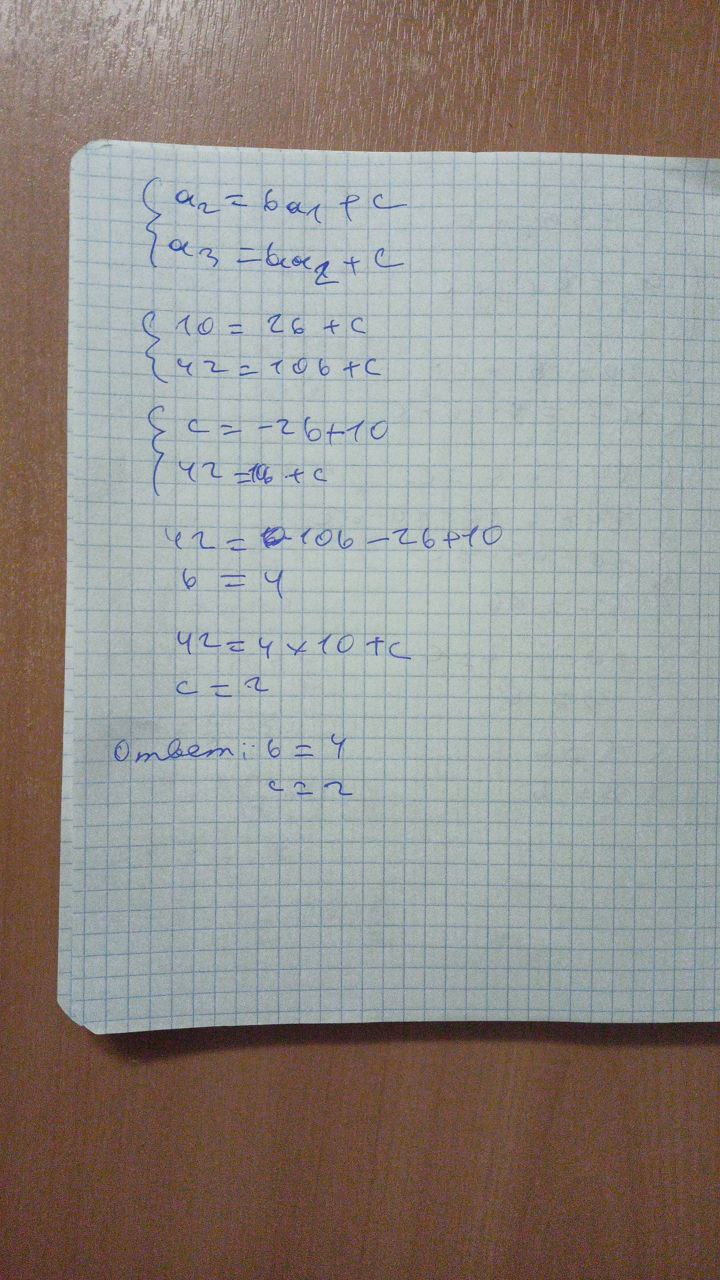 a₂ = ba₁ + c
a₃ = ba₂ + c
10 = 2b + c
42 = 10b + c
c = -2b + 10
42 = 10b + c
42 = 10b - 2b + 10
b = 4
42 = 4 × 10 + c
c = 2
Ответ: b = 4
c = 2